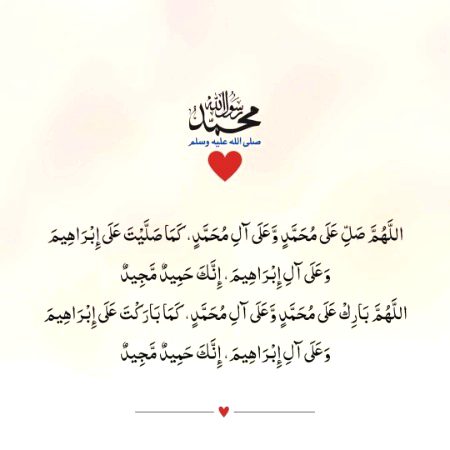 محمد رسول الله
صلى الله عليه وسلم
اللَّهُمَّ صَلِّ عَلَى مُحَمَّدٍ وَّعَلَى آلِ مُحَمَّدٍ، كَمَا صَلَّيْتَ عَلَى إِبْرَاهِيمَ
وَعَلَى آلِ إِبْرَاهِيمَ، إِنَّكَ حَمِيدٌ مَّجِيدٌ
اللَّهُمَّ بَارِكْ عَلَى مُحَمَّدٍ وَّعَلَى آلِ مُحَمَّدٍ، كَمَا بَارَكْتَ عَلَى إِبْرَاهِيمَ
وَعَلَى آلِ إِبْرَاهِيمَ، إِنَّكَ حَمِيدٌ مَّجِيدٌ